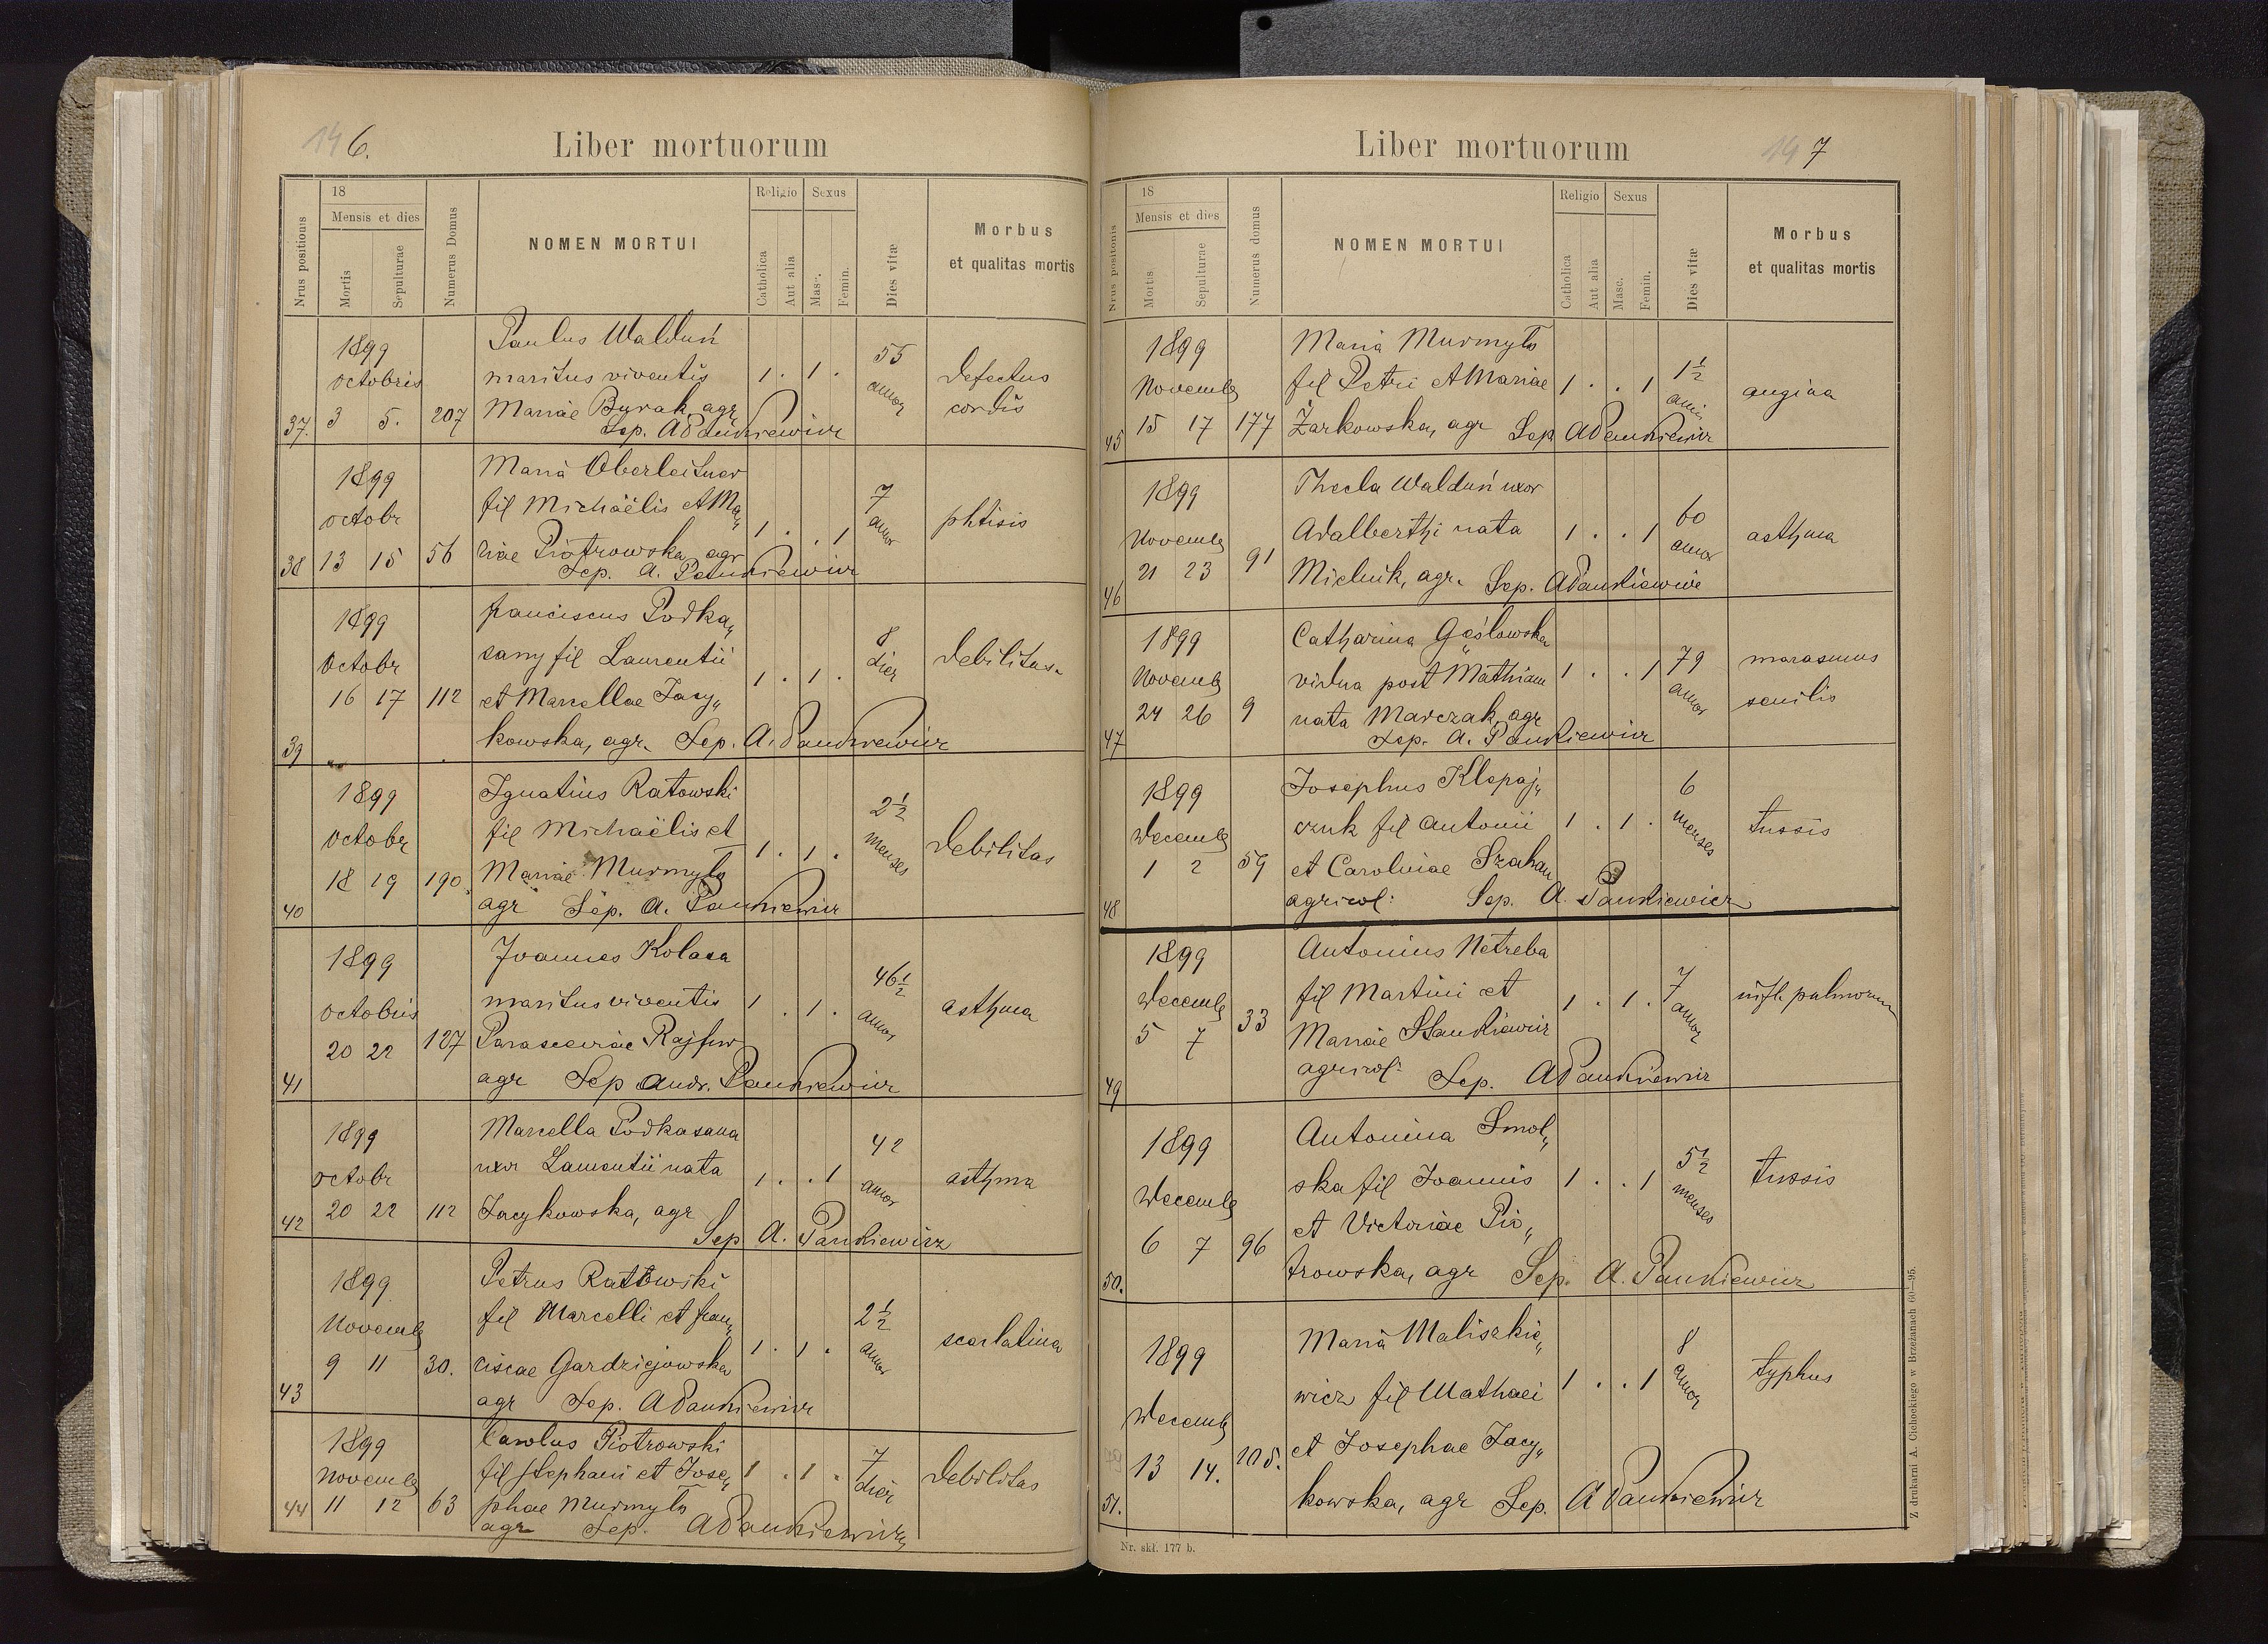 146.
Liber mortuorum
Nrus positionis
18
Mensis et dies
Mortis
Sepulturae
Numerus Domus
NOMEN MORTUI
Religio
Sexus
Catholica
Aut alia
Masc.
Femin.
Dies vitæ
Morbus
et qualitas mortis
1899
octobris
37. 3 5. 207
Paulus Walduń
maritus viventis
Mariae Burak, agr
Sep. APankiewicz
1 . 1 .
55
annor
defectus
cordis
1899
octobr
38 13 15 56
Maria Oberleitner
fil Michaëlis et Ma„
riae Piotrowska, agr
Sep. A. Pankiewicz
1 . . 1
7
annor
phtisis
1899
Octobr
16 17 112
39
franciscus Podka„
sany fil Laurentii
et Marcellae Jacy„
kowska, agr. Sep. A. Pankiewicz
1 . 1 .
8
dier
debilitas.
1899
octobr
18 19 190.
40
Ignatius Ratowski
fil Michaëlis et
Mariae Murmyło
agr Sep. A. Pankiewicz
1 . 1 .
2½
menses
debilitas
1899
octobris
20 22 127
41
Joannes Kolasa
maritus viventis
Parasceviae
agr Sep Andr. Pankiewicz
1 . 1 .
46½
annor
asthma
1899
octobr
42 20 22 112
Marcella Podkasana
uxor Laurentii nata
Jacykowska, agr
Sep A. Pankiewicz
1 . . 1
42
annor
asthma
1899
Novemb
9 11 30.
43
Petrus Ratowski
fil Marcelli et fran„
ciscae Gardziejowska
agr Sep. APankiewicz
1 . 1 .
2½
annor
scarlatina
1899
Novemb
44 11 12 63
Carolus Piotrowski
fil Stephani et Jose„
phae Murmyło
agr Sep. APankiewicz
1 . 1 .
7
dier
debilitas
147
Liber mortuorum
Nrus positonis
18
Mensis et dies
Mortis
Sepulturae
Numerus domus
NOMEN MORTUI
Religio
Sexus
Catholica
Aut alia
Masc.
Femin.
Dies vitæ
Morbus
et qualitas mortis
1899
Novemb
45 15 17 177
Maria Murmyło
fil Petri et Mariae
Żarkowska, agr Sep APankiewicz
1 . . 1
1½
anni
angina
1899
Novemb
46 21 23 91
Thecla Walduń uxor
Adalberthi nata
Michnik, agr. Sep. APankiewicz
1 . . 1
60
annor
asthma
1899
Novemb
24 26 9
47
Catharina Gąsłowska
vidua post Mathiam
nata Marczak, agr
Sep. A. Pankiewicz
1 . . 1
79
annor
marasmus
senilis
1899
Decemb
1 2 59
48
Josephus Klepaj„
czuk fil Antonii
et Carolinae Szahan
agricol: Sep. A. Pankiewicz
1 . 1 .
6
menses
tussis
1899
Decemb
5 7 33
49
Antonius Netreba
fil Martini et
Mariae Stankiewicz
agricol: Sep. APankiewicz
1 . 1 .
7
annor
infl. pulmorum
1899
Decemb
6 7 96
50.
Antonina Smol„
ska fil Joannis
et Victoriae Pio„
trowska, agr Sep. A. Pankiewicz
1 . . 1
5½
menses
tussis
1899
Decemb
13 14. 108.
51.
Maria Maliszkie„
wicz fil Mathaei
et Josephae Jacy„
kowska, agr Sep. A Pankiewicz
1 . . 1
8
annor
typhus
Nr. skł. 177 b.
Z drukarni A. Cichockiego w Brzeżanach 60—95.